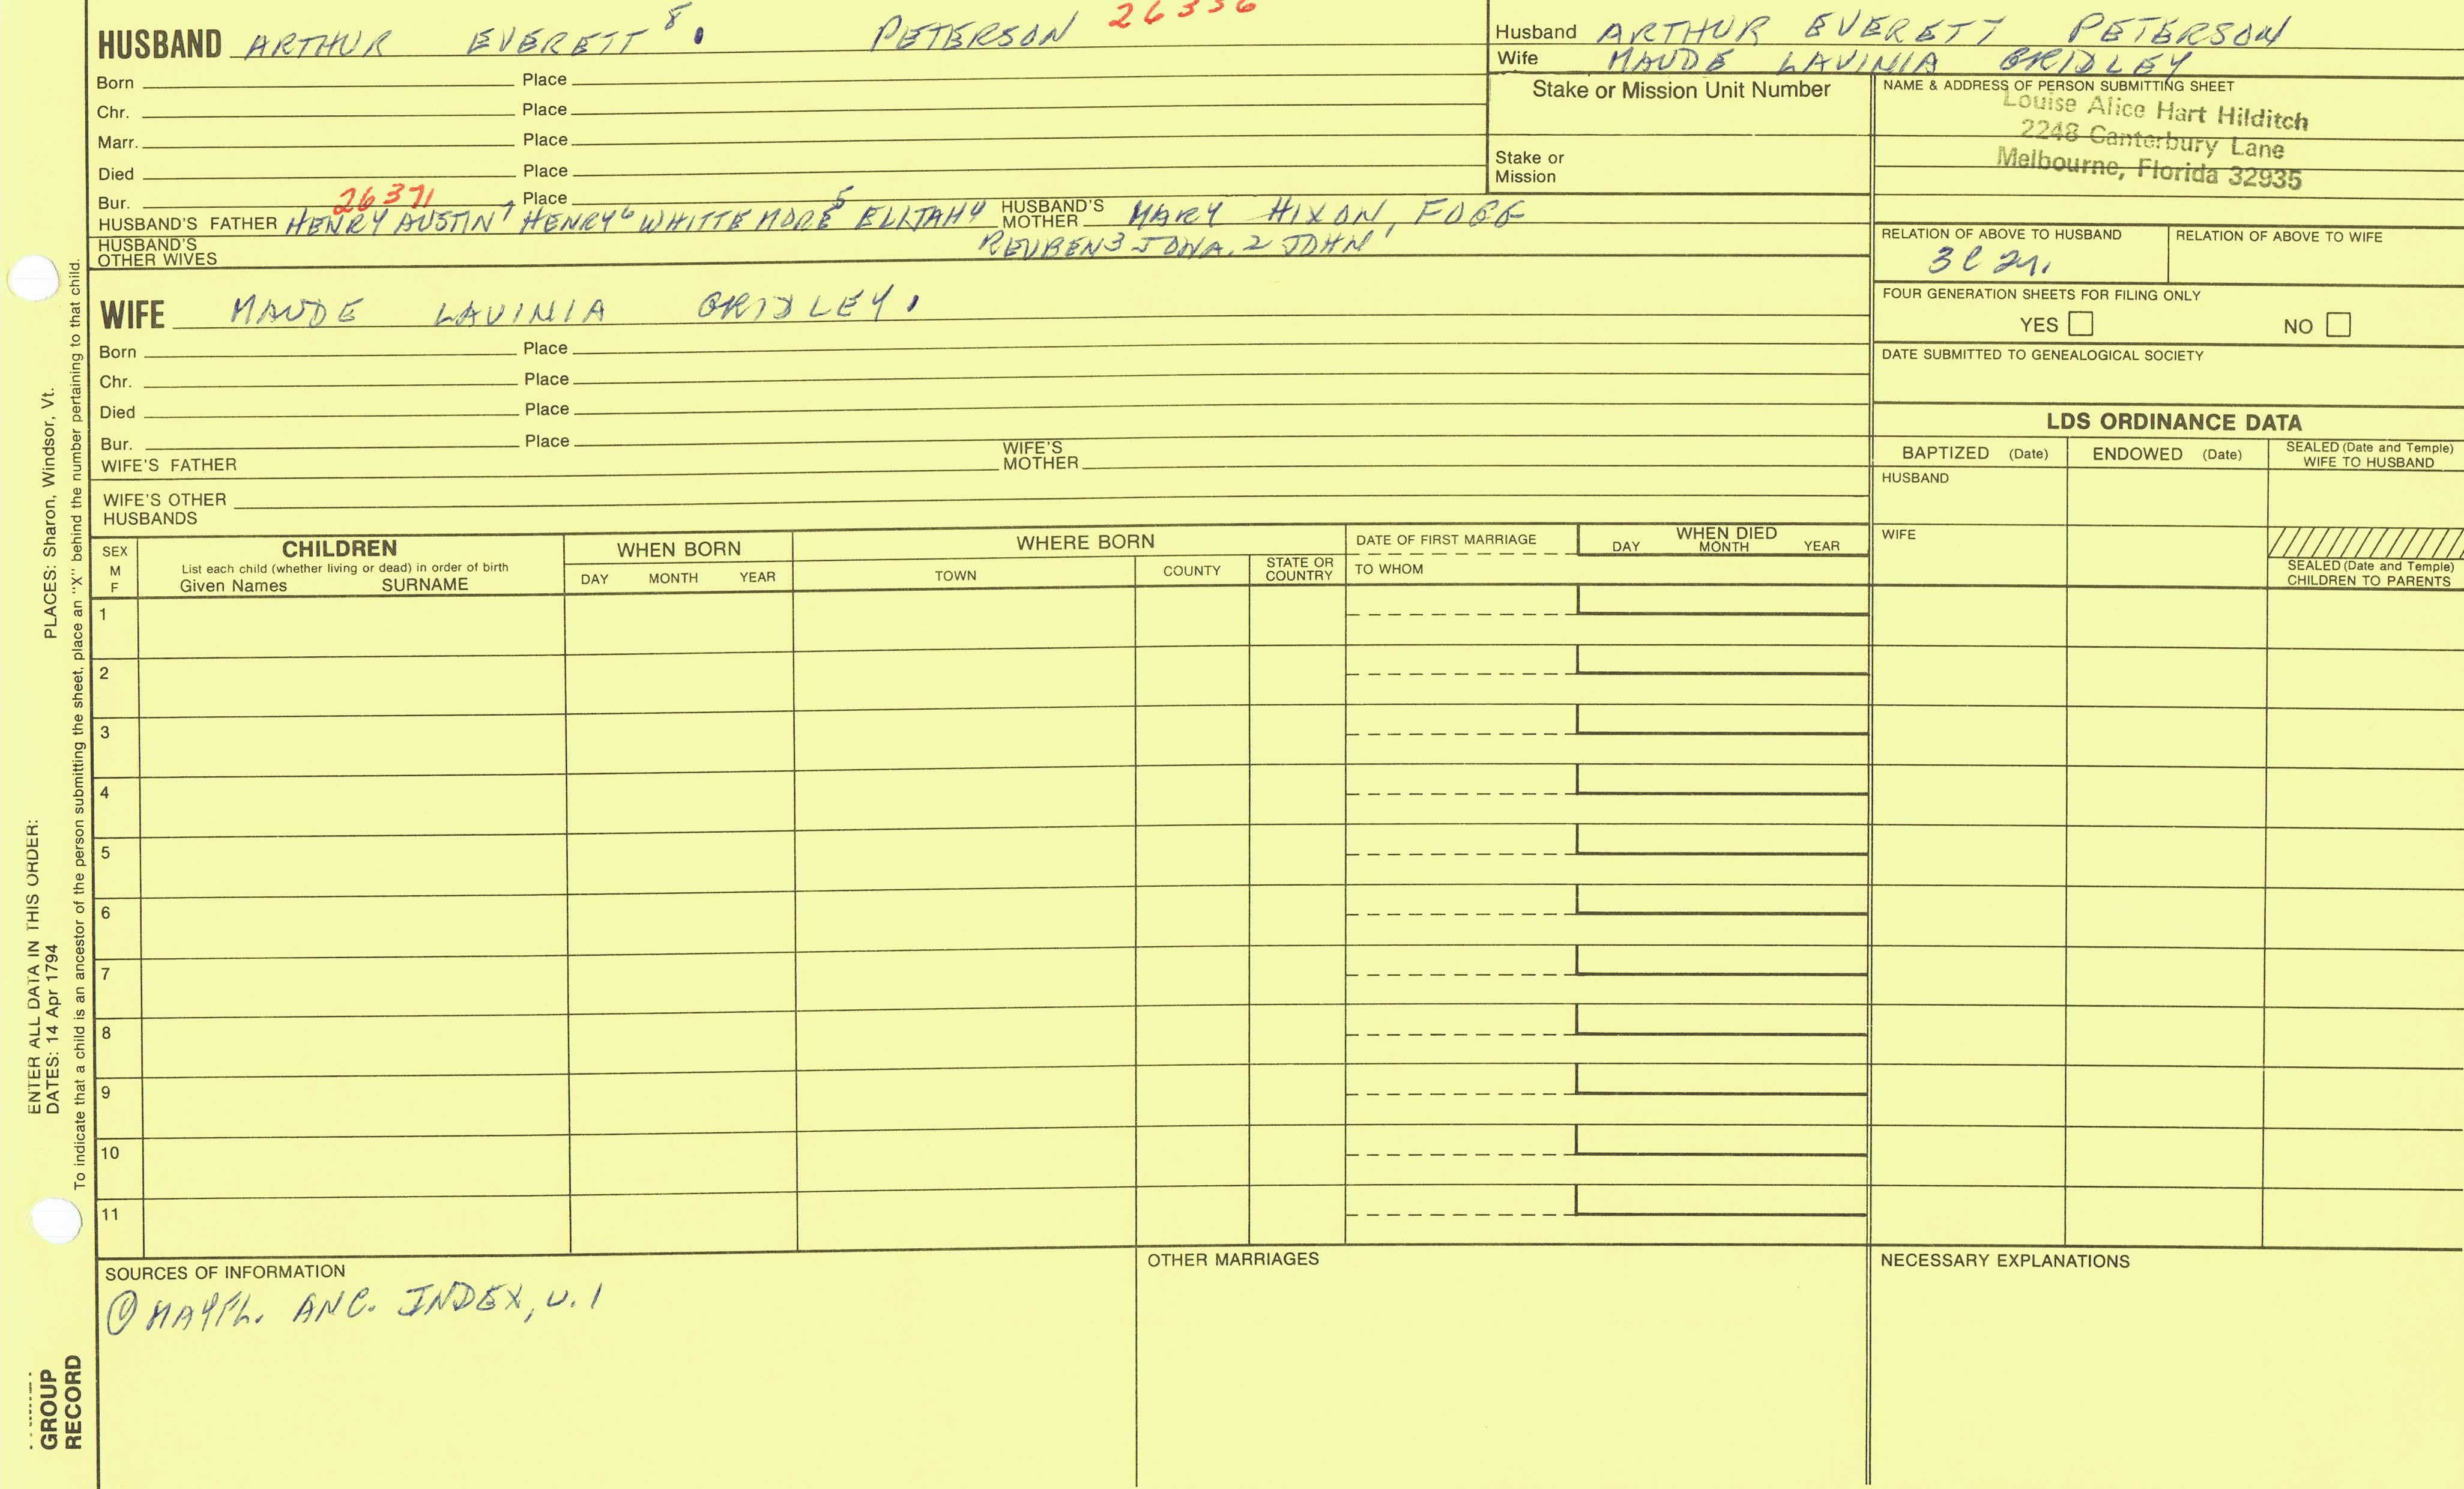 HUSBAND ARTHUR EVERETT 8. PETERSON 26336
Husband ARTHUR EVERETT PETERSON
Wife MAUDE LAVINIA GRIDLEY
Born Place
Chr. Place
Marr. Place
Died Place
Bur. 26371 Place
HUSBAND'S FATHER HENRY AUSTIN 7 HENRY 6 WHITTEMORE 5 ELIJAH 4 HUSBAND'S MOTHER MARY HIXON, FOGG
HUSBAND'S OTHER WIVES REUBEN 3 JONA. 2 JOHN 1
Stake or Mission Unit Number
Stake or
Mission
NAME & ADDRESS OF PERSON SUBMITTING SHEET
Louise Alice Hart Hilditch
2248 Canterbury Lane
Melbourne, Florida 32935
RELATION OF ABOVE TO HUSBAND RELATION OF ABOVE TO WIFE
FOUR GENERATION SHEETS FOR FILING ONLY
YES NO
DATE SUBMITTED TO GENEALOGICAL SOCIETY
WIFE MAUDE LAVINIA GRIDLEY.
Born Place
Chr. Place
Died Place
Bur. Place
WIFE'S FATHER WIFE'S MOTHER
WIFE'S OTHER
HUSBANDS
LDS ORDINANCE DATA
BAPTIZED (Date) ENDOWED (Date) SEALED (Date and Temple) WIFE TO HUSBAND
HUSBAND
WIFE
SEALED (Date and Temple)
CHILDREN TO PARENTS
SEX
M
F
CHILDREN
List each child (whether living or dead) in order of birth
Given Names SURNAME
WHEN BORN
DAY MONTH YEAR
WHERE BORN
TOWN COUNTY STATE OR COUNTRY
DATE OF FIRST MARRIAGE
TO WHOM
WHEN DIED
DAY MONTH YEAR
1
2
3
4
5
6
7
8
9
10
11
SOURCES OF INFORMATION
① MAYFL. ANC. INDEX, V. 1
OTHER MARRIAGES
NECESSARY EXPLANATIONS
GROUP
RECORD
ENTER ALL DATA IN THIS ORDER:
DATES: 14 Apr 1794
PLACES: Sharon, Windsor, Vt.
To indicate that a child is an ancestor of the person submitting the sheet, place an "X" behind the number pertaining to that child.